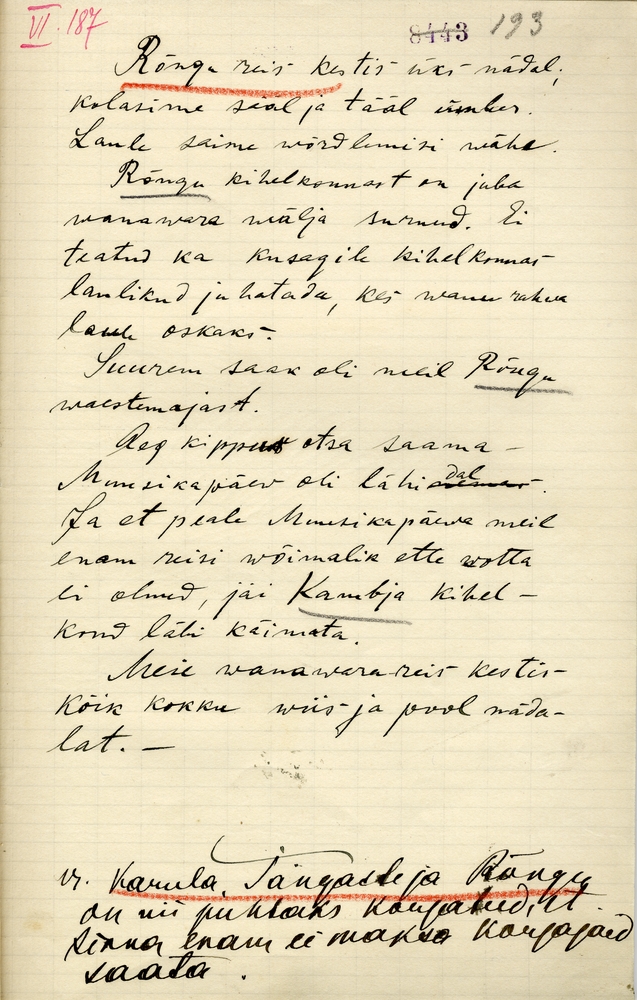 VI. 187
8443 193
Rõngu reis kestis üks nädal;
kolasime seal ja tääl ümber.
Laule saime wõrdlemisi wähe.
Rõngu kihelkonnast on juba
wanawara wälja surnud. Ei
teatud ka kusagile kihelkonnas
laulikud juhatada, kes wanu rahwa
laule oskaks.
Suurem saak oli meil Rõngu
waestemajast.
Aeg kippus otsa saama –
Muusikapäew oli lähidal.
Ja et peale Muusikapäewa meil
enam reisi wõimalik ette wotta
ei olnud, jäi Kambja kihel-
kond läbi käimata.
Meie wanawara-reis kestis
kõik kokku wiis ja pool näda-
lat. —
Karula, Sangaste ja Rõngu
on nii puhtaks korjatud, et
sinna enam ei maksa korjajaid
saata.